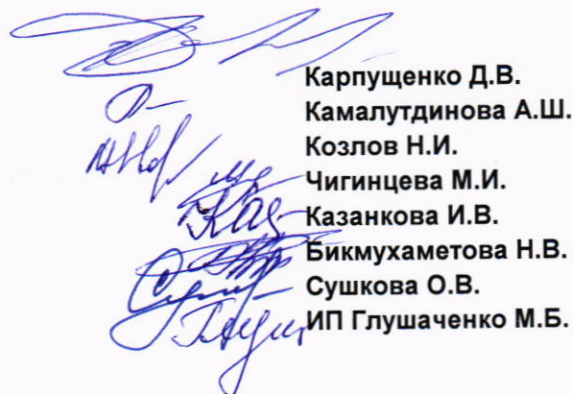 Карпущенко Д.В.
Камалутдинова А.Ш.
Козлов Н.И.
Чигинцева М.И.
Казанкова И.В.
Бикмухаметова Н.В.
Сушкова О.В.
ИП Глушаченко М.Б.